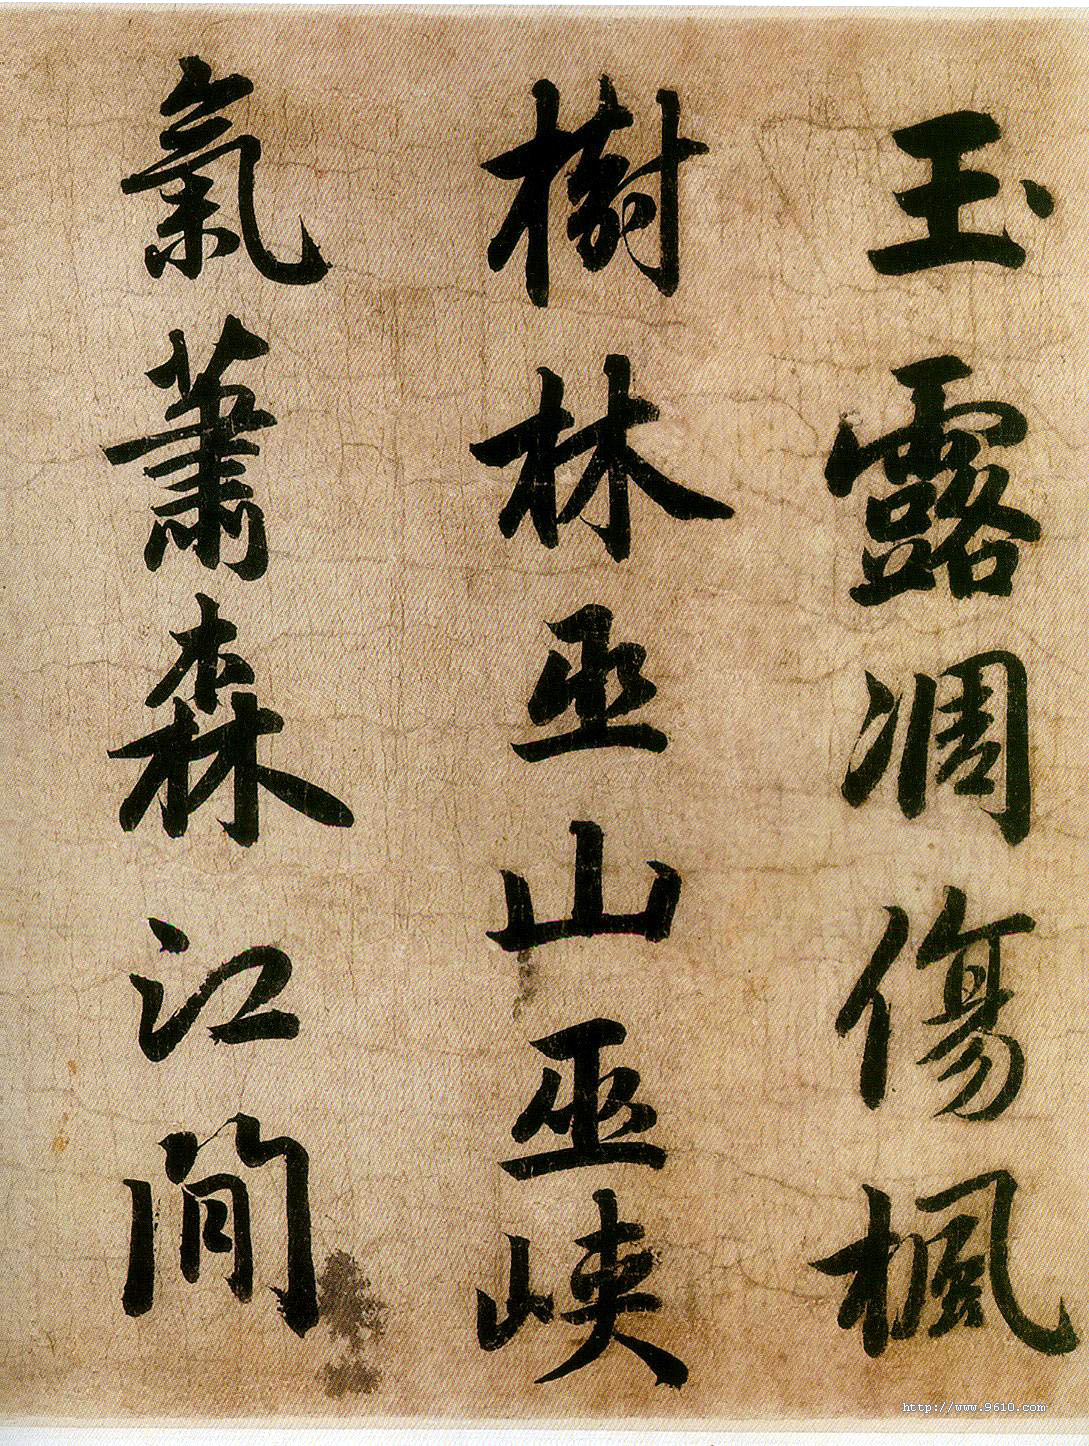 玉露凋傷楓
樹林巫山巫峽
氣蕭森江間
http://www.9610.com